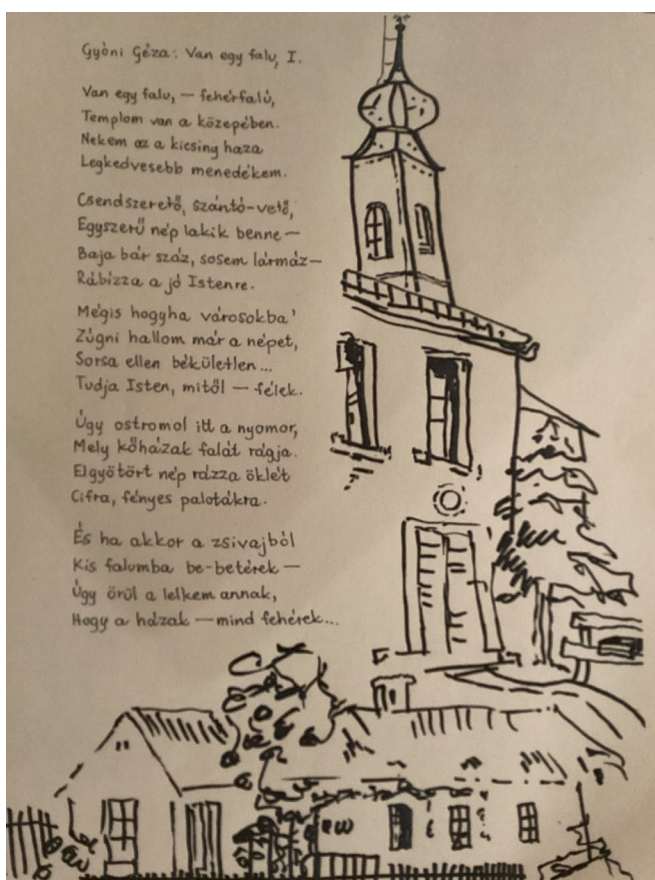 Gyóni Géza: Van egy falu, I.
Van egy falu, — fehérfalú,
Templom van a közepében.
Nekem az a kicsiny haza
Legkedvesebb menedékem.
Csendszerető, szántó-vető,
Egyszerű nép lakik benne —
Baja bár száz, sosem lármáz —
Rábízza a jó Istenre.
Mégis hogyha városokba'
Zúgni hallom már a népet,
Sorsa ellen békületlen...
Tudja Isten, mitől — félek.
Úgy ostromol itt a nyomor,
Mely kőházak falát rágja.
Elgyötört nép rázza öklét
Cifra, fényes palotákra.
És ha akkor a zsivajból
Kis falumba be-betérek —
Úgy örül a lelkem annak,
Hogy a házak — mind fehérek...